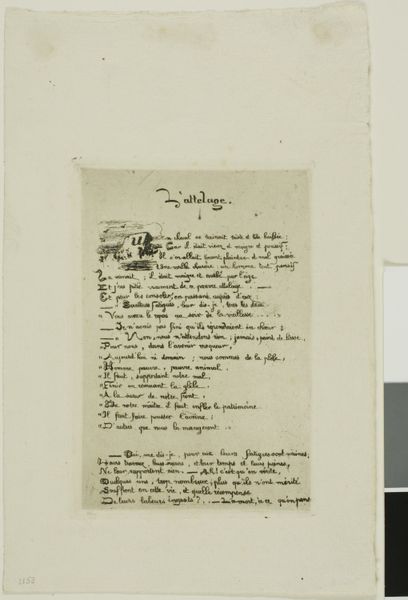 L'attelage.
Un cheval se trainait triste et tête baissée;
Car il était vieux et maigre et poussif;
Il s'en allait
homme tout pensif
Le suivait; il était maigre et
par l'âge
Et j'eus pitié vraiment de ce pauvre attelage. —
Et pour les consoler, en passant auprès d'eux:
" Quelques fatigues, leur dis-je, tous les deux
" Vous aurez le repos au soir de la vieillesse....
— Je n'avais pas fini qu'ils répondaient en chœur:
— " Non, nous n'attendons rien; jamais, point de liesse,
Pour nous, dans l'avenir moqueur,
" Aujourd'hui ni demain; nous sommes de la plèbe,
" Homme pauvre, pauvre animal.
" Il faut, supportant notre mal,
" en creusant la glèbe.
" A la sueur de notre front,
" De notre maître il faut enfler le patrimoine
" Il faut faire pousser l'avoine;
" D'autres que nous la mangeront. "
— Oui, me dis-je, pour eux leurs fatigues sont vaines;
Leurs travaux, et leur temps et leurs peines,
Ne leur rapportent rien. — Ah! c'est qu'en vérité,
Quelques uns, trop nombreux; plus qu'ils n'ont mérité
Souffrent en cette vie, et quelle récompense
De leurs labeurs ingrats? .. — La mort, à ce qu'on pense